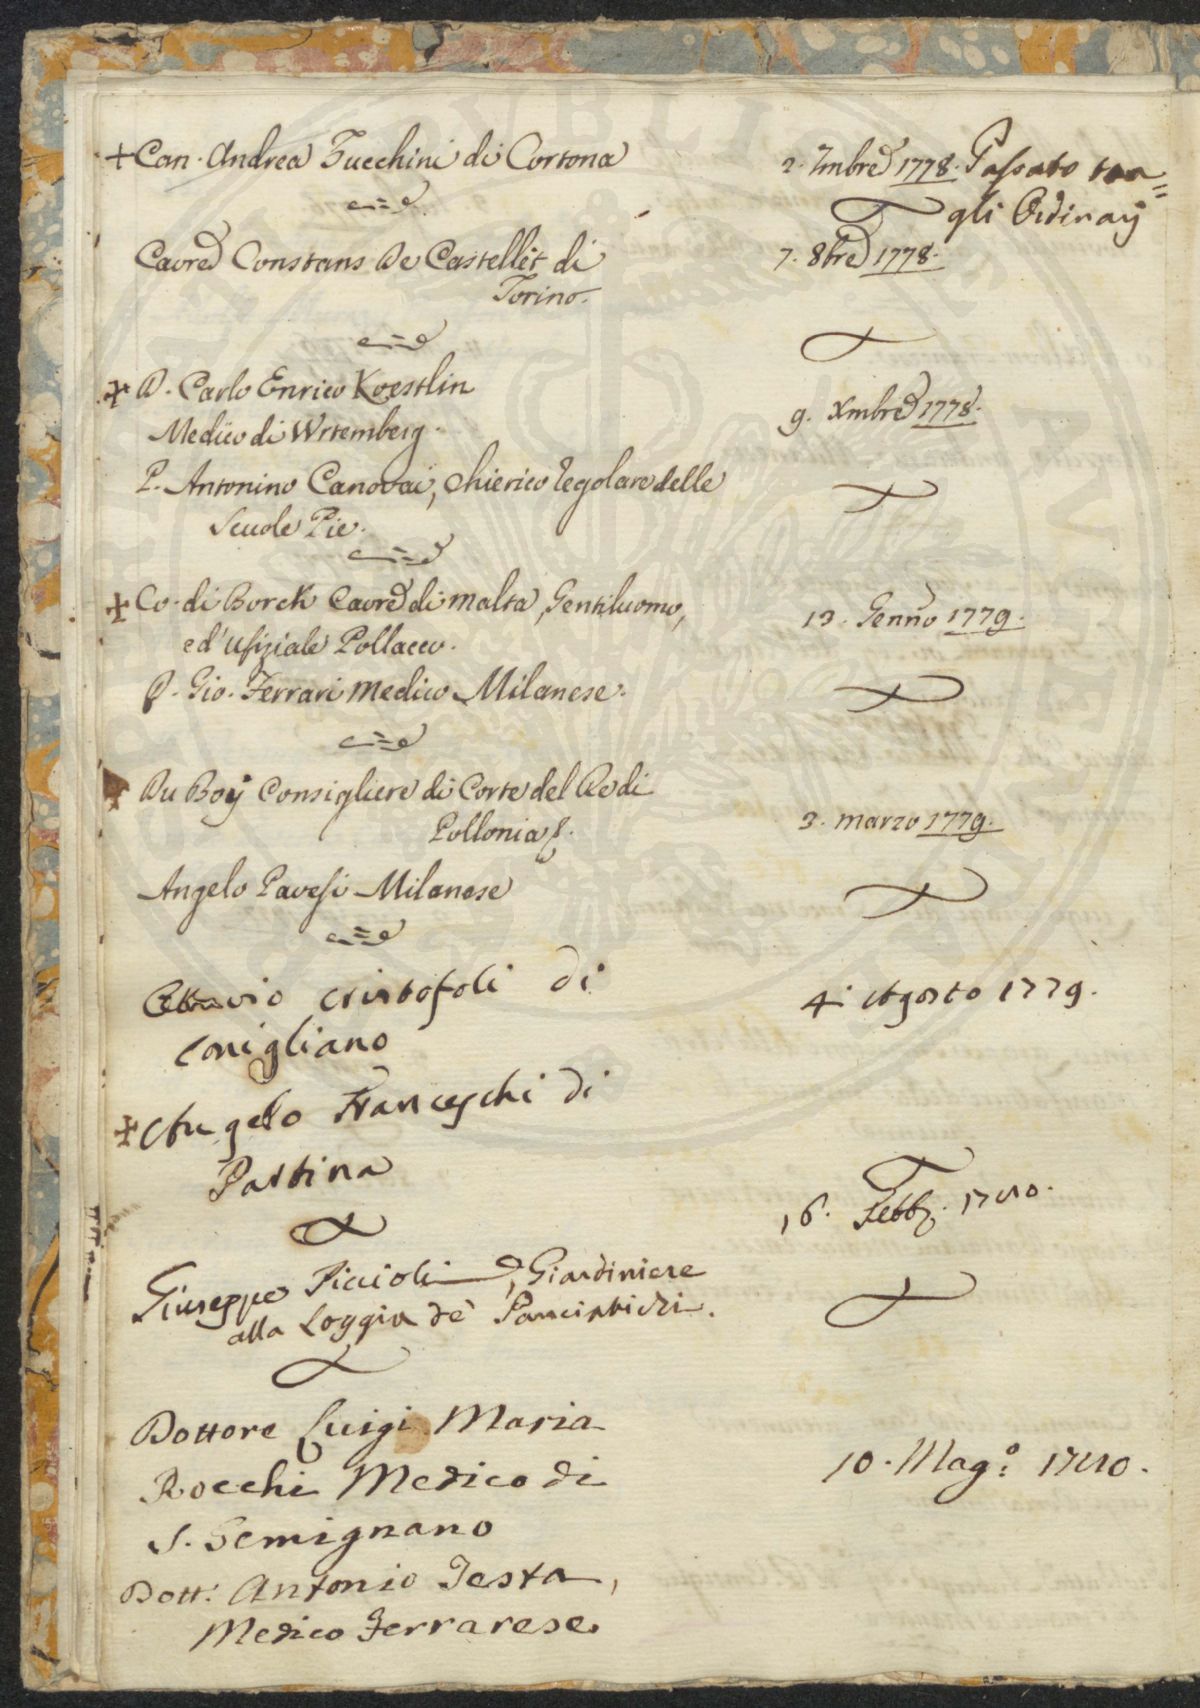 + Can. Andrea Zucchini di Cortona
2. 7mbre 1778. Passato tra
gli Ordinarj
Cavre Constans De Castellet di
Torino.
7. 8bre 1778.
D. Carlo Enrico Koestlin
Medico di Wrtemberg.
9. Xmbre 1778.
P. Antonino Canovai, Chierico Regolare delle
Scuole Pie.
Co. di Borch Cavre di Malta, Gentiluomo,
ed' Ufiziale Pollacco.
13. Genno 1779.
D. Gio. Ferrari Medico Milanese.
Du Boy Consigliere di Corte del Re di
Pollonia
3. Marzo 1779.
Angelo Pavesi Milanese
Ottavio Cristofoli di
Conigliano
4. Agosto 1779.
Angelo Franceschi di
Pastina
16. Febb. 1780.
Giuseppe Piccioli, Giardiniere
alla Loggia de' Panciatichi.
Dottore Luigi Maria
Rocchi Medico di
S. Gemignano
10. Mag: 1780.
Dott: Antonio Testa,
Medico Ferrarese.